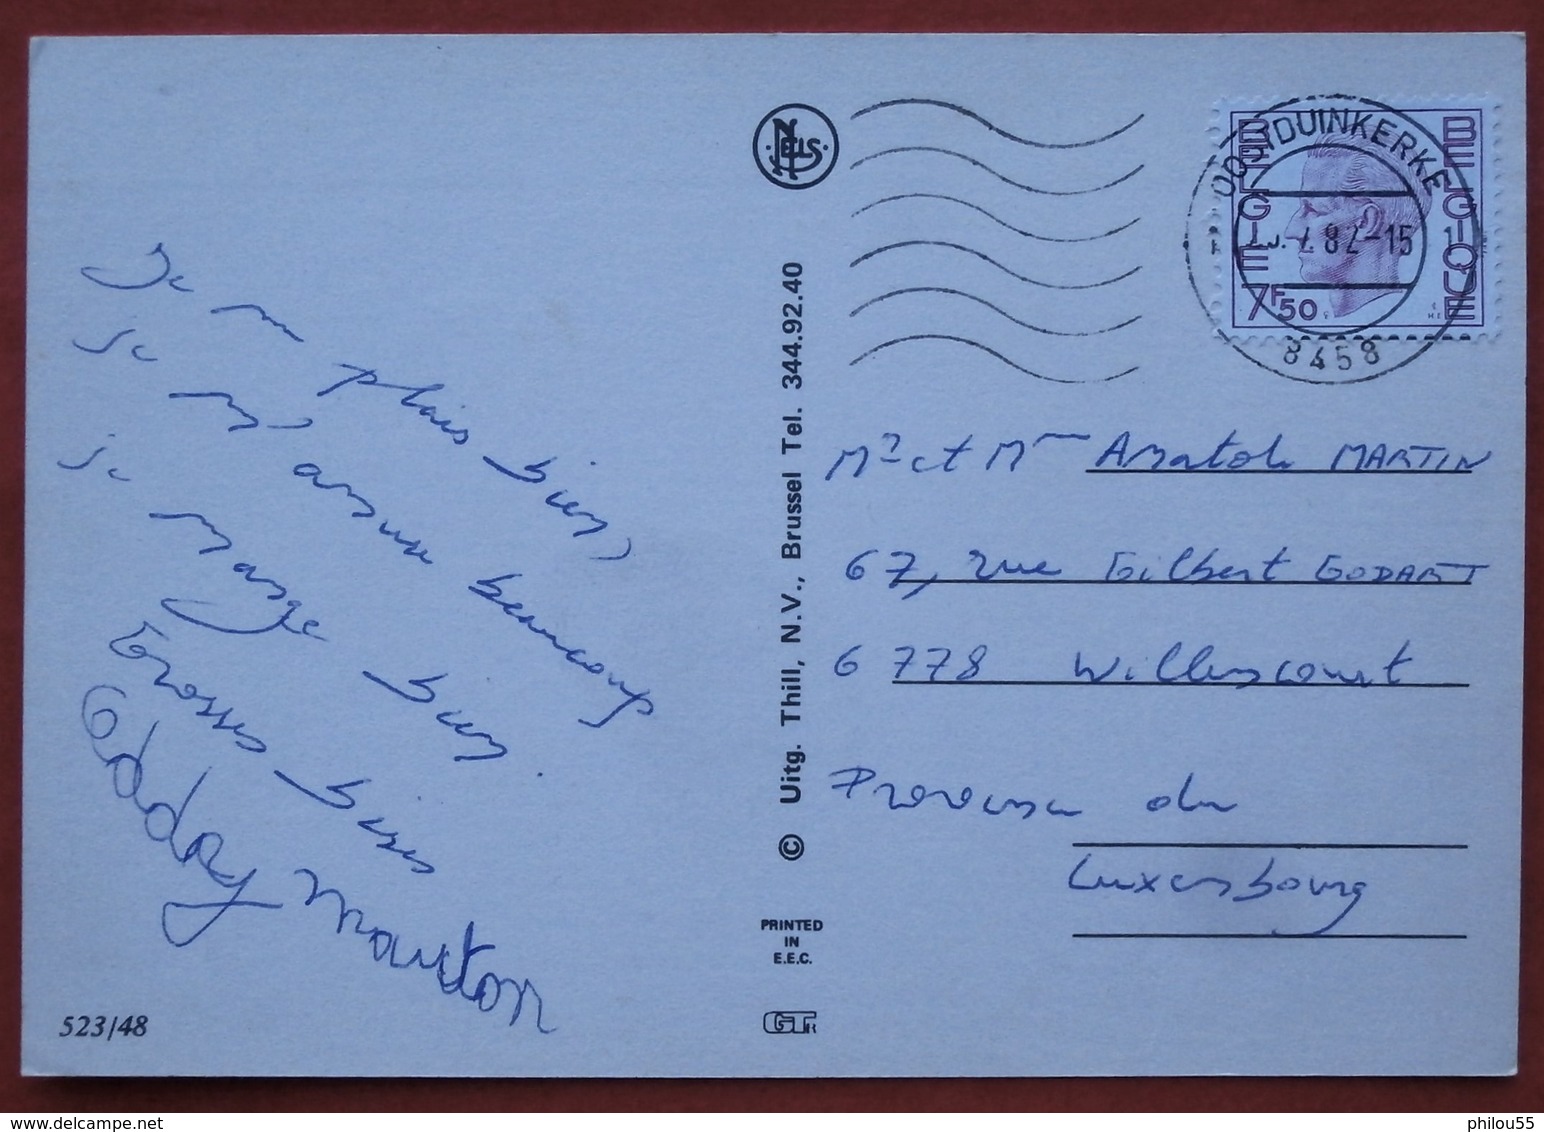 Je me plais bien,
je m'amuse beaucoup
je mange bien.
Grosses bises
523/48
NELS
© Uitg. Thill, N.V., Brussel Tel. 344.92.40
PRINTED
IN
E.E.C.
GTR
OOSTDUINKERKE
82-15
8458
BELGIE
BELGIQUE
7F50
Mr et Mme Anatole MARTIN
67, rue Gilbert GODART
6778 Willencourt
Province du
Luxembourg
philou55